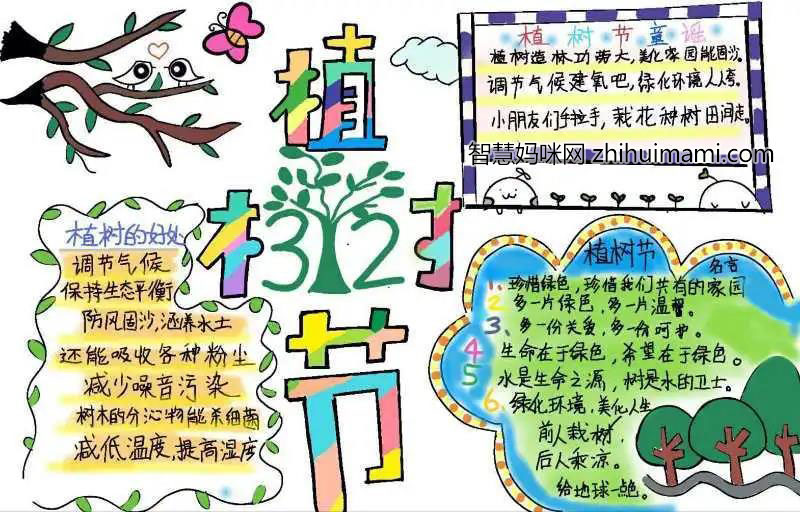 植树节
3 12
植树节童谣
植树造林功劳大,美化家园能固沙。
调节气候建氧吧,绿化环境人人夸。
小朋友们手拉手,栽花种树田间走。
智慧妈咪网 zhihuimami.com
植树的好处
调节气候
保持生态平衡
防风固沙,涵养水土
还能吸收各种粉尘
减少噪音污染
树木的分沁物能杀细菌
减低温度,提高湿度
植树节 名言
1、珍惜绿色,珍惜我们共有的家园
2、多一片绿色,多一片温馨。
3、多一份关爱,多一份呵护。
4 生命在于绿色,希望在于绿色。
5 水是生命之源,树是水的卫士。
6、绿化环境,美化人生
前人栽树,
后人乘凉。
给地球一点色。